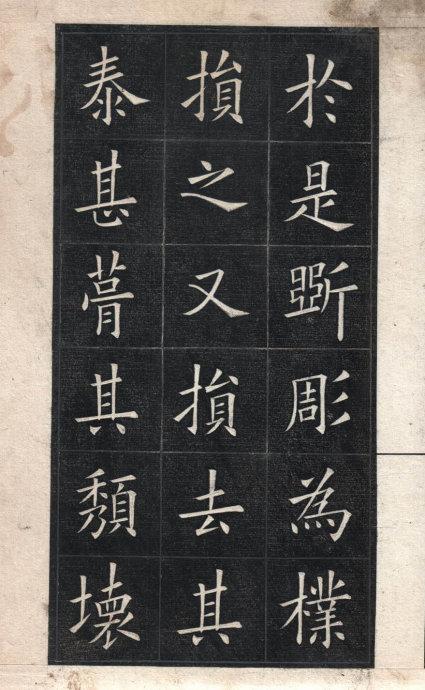 於是斲彫為樸
損之又損去其
泰甚葺其頽壞